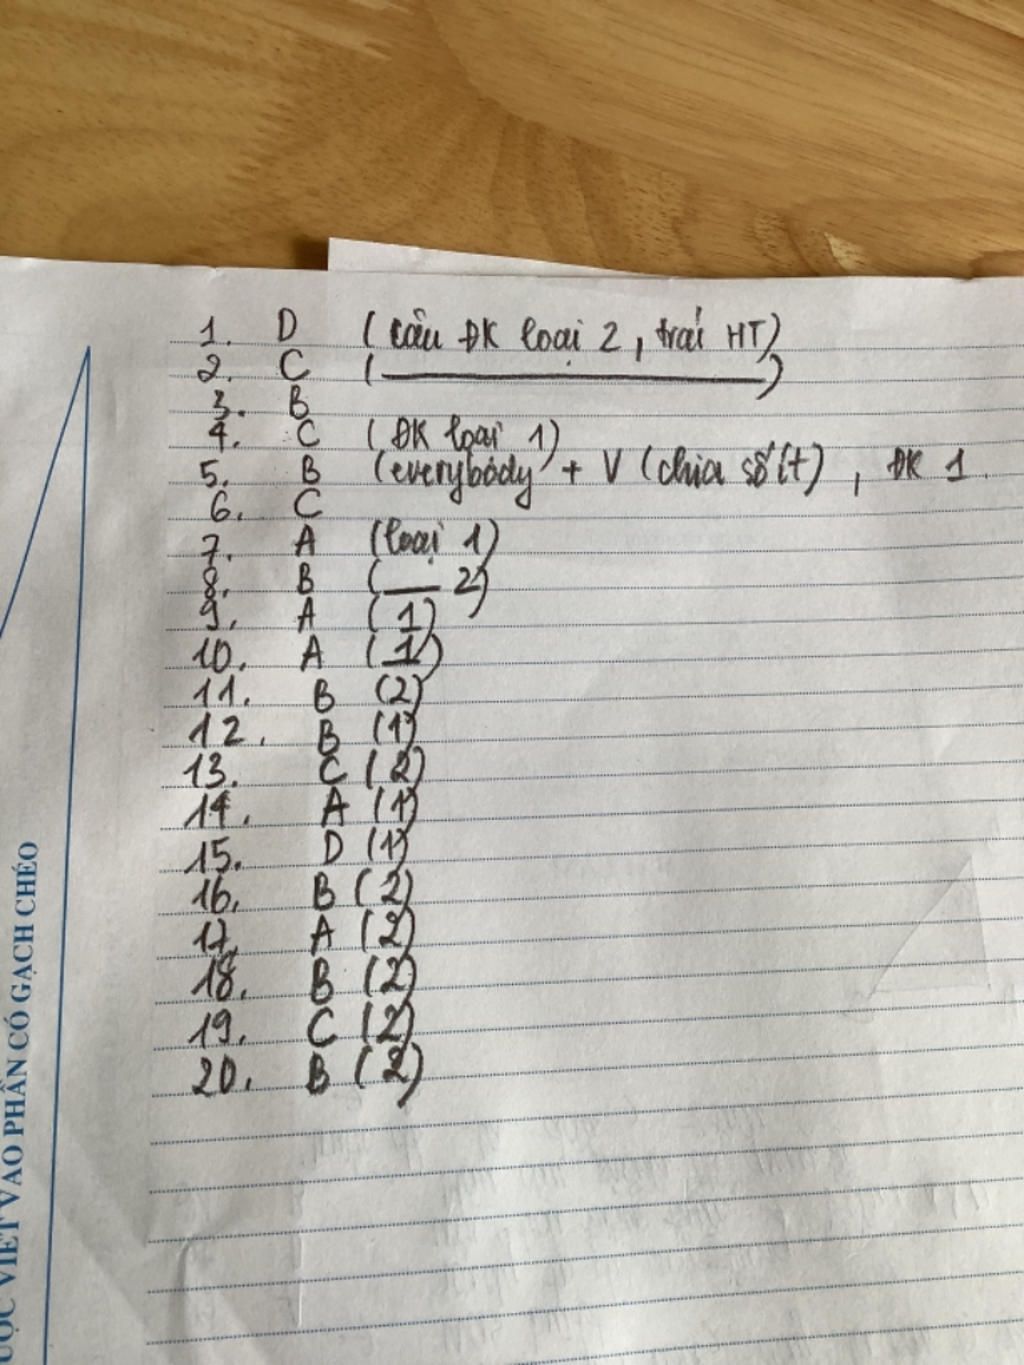 1. D (câu ĐK loại 2, trái HT)
2. C ( ——— )
3. B
4. C (ĐK loại 1)
5. B (everybody + V (chia số ít), ĐK 1.
6. C
7. A (loại 1)
8. B ( — 2)
9. A (1)
10. A (1)
11. B (2)
12. B (1)
13. C (2)
14. A (1)
15. D (1)
16. B (2)
17. A (2)
18. B (2)
19. C (2)
20. B (2)
VIẾT VÀO PHẦN CÓ GẠCH CHÉO